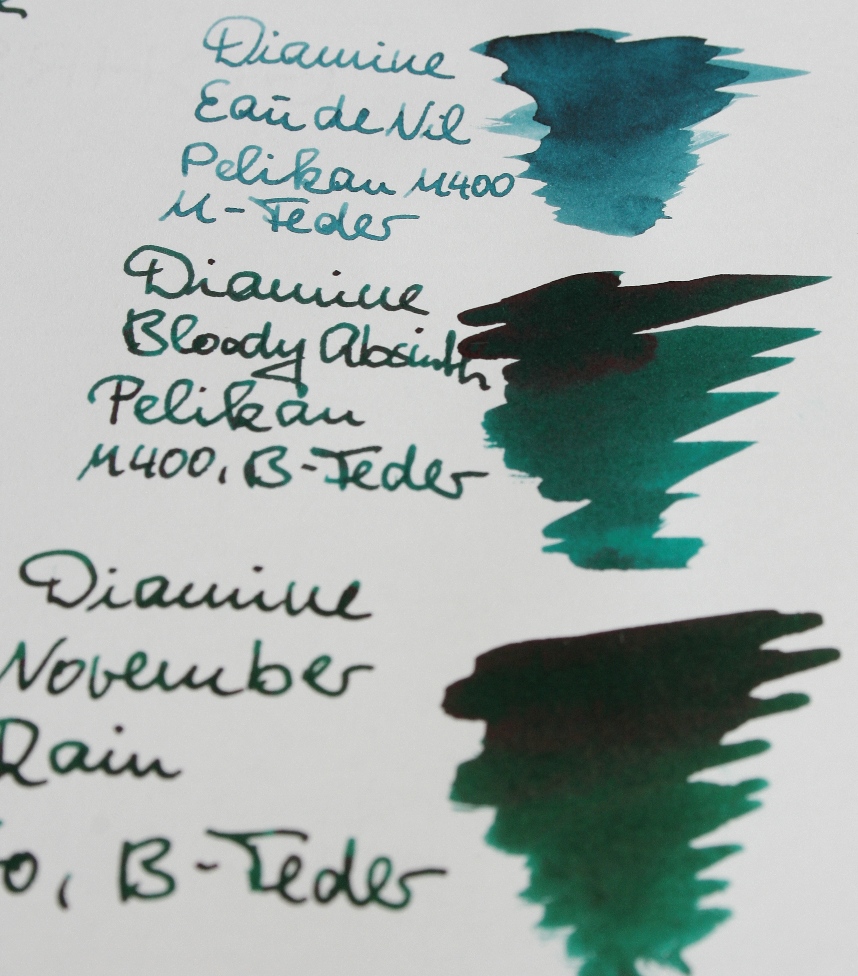 Diamine
Eau de Nil
Pelikan M400
M-Feder
Diamine
Bloody Absinth
Pelikan
M400, B-Feder
Diamine
November
Rain
0, B-Feder